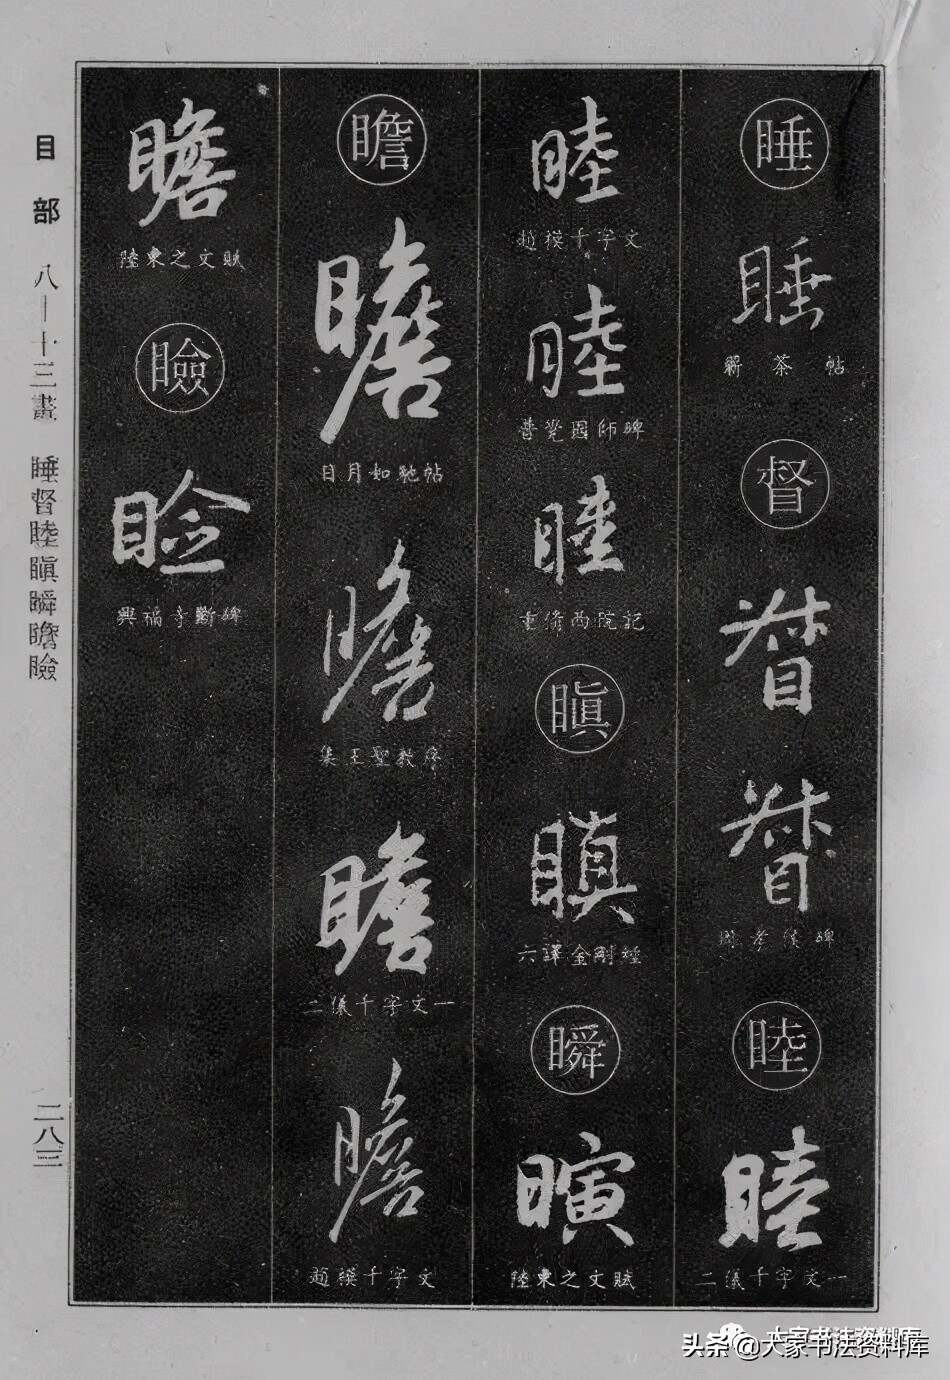 睡
睡
齋茶帖
督
督
督
周孝侯碑
睦
睦
二儀千字文一
睦
趙模千字文
睦
普覺國師碑
睦
重脩西院記
瞋
瞋
六譯金剛經
瞬
瞚
陸柬之文賦
瞻
瞻
日月如馳帖
瞻
集王聖教序
瞻
二儀千字文一
瞻
趙模千字文
瞻
陸柬之文賦
瞼
瞼
興福寺斷碑
目部 八—十三畫 睡督睦瞋瞬瞻瞼
二八三
头条@大家书法资料库